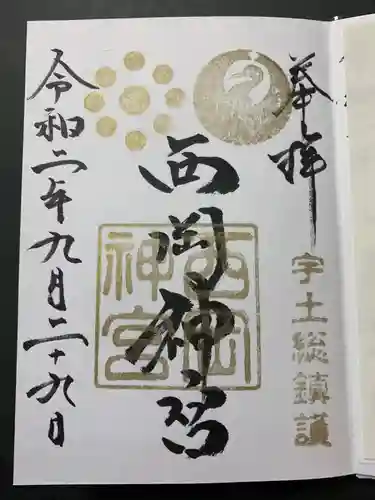 奉拝
宇土総鎮護
西岡神宮
西岡神宮
令和二年九月二十九日